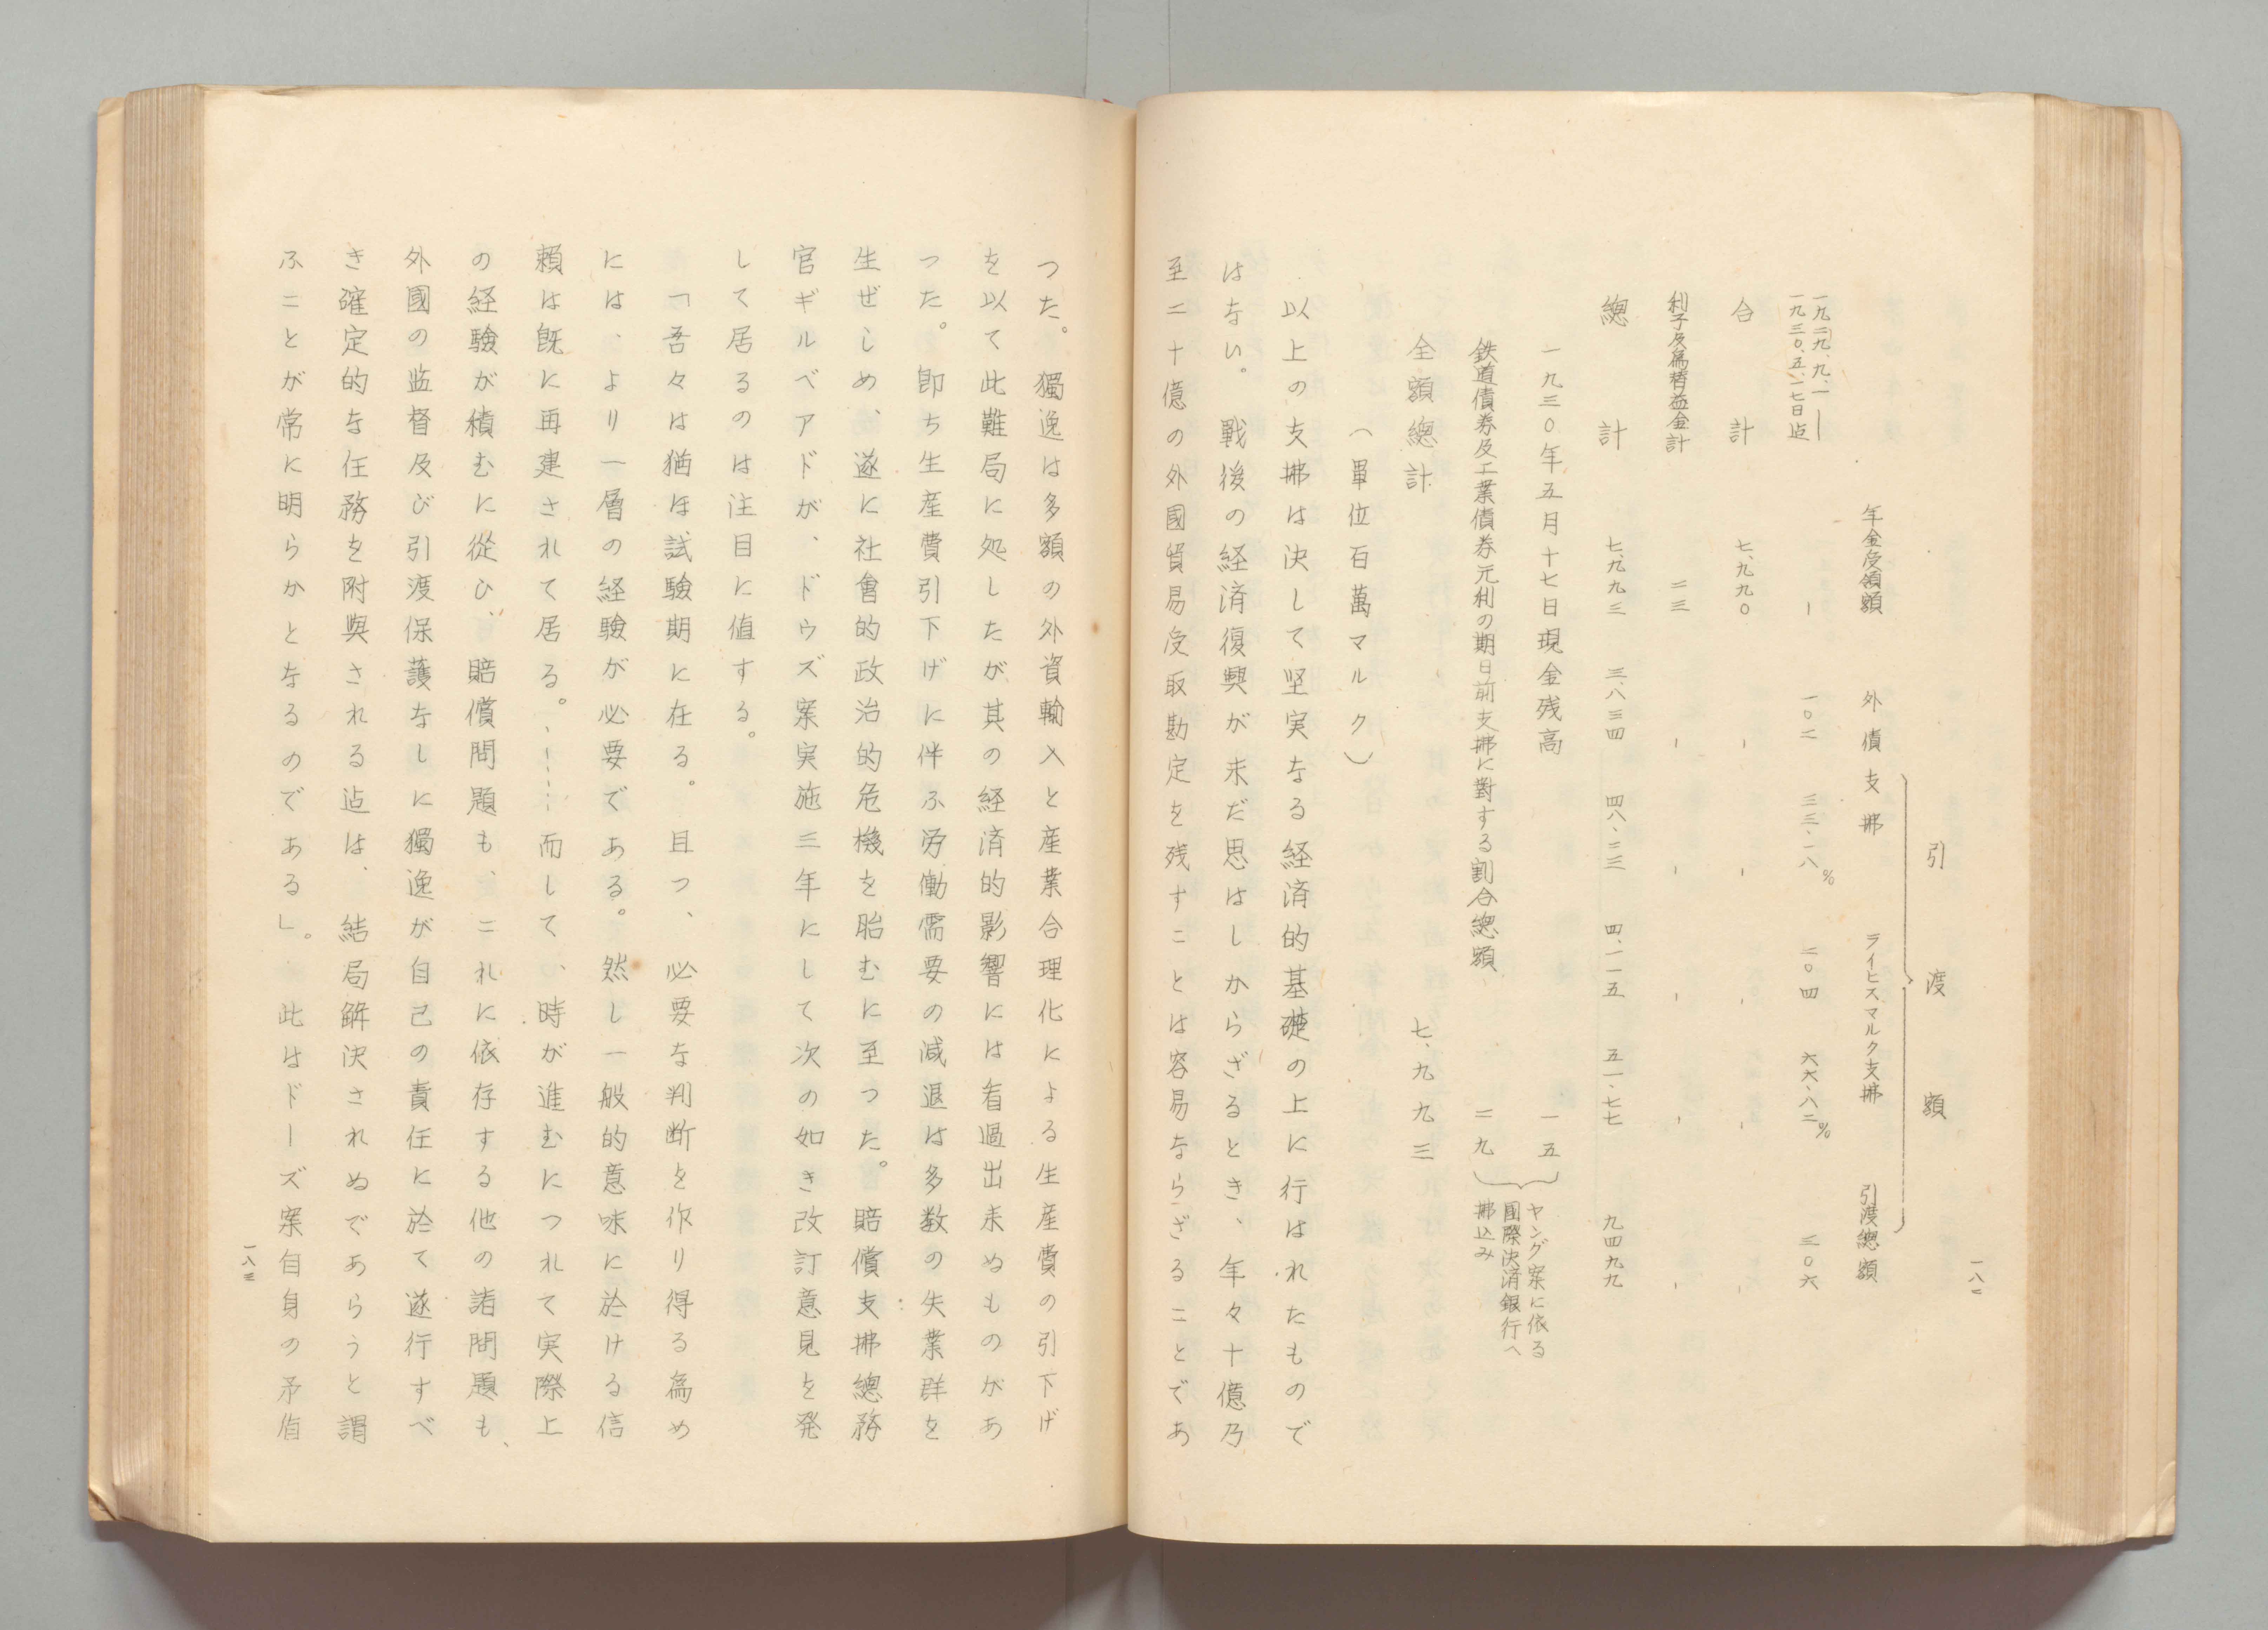 引渡額
年金受領額 外債支拂 ライヒスマルク支拂 引渡總額
一九二九、九、一―
一九三〇、五、一七日迠
― 一〇二 三三・一八% 二〇四 六六・八二% 三〇六
合計 七、九九〇 - - - - -
利子及為替益金計 二三 - - - - -
總計 七、九九三 三、八三四 四八・二三 四、一一五 五一・七七 九四九九
一九三〇年五月十七日現金残高 一五
鉄道債券及工業債券元利の期日前支拂に對する割合總額 二九
ヤング案に依る
国際決済銀行へ
拂込み
全額總計 七、九九三
(單位百萬マルク)
以上の支拂は決して坚実なる経済的基礎の上に行はれたもので
はない。戦後の経済復興が未だ思はしからざるとき、年々十億乃
至二十億の外國貿易受取勘定を残すことは容易ならざることであ
一八二
つた。獨逸は多額の外資輸入と産業合理化による生産費の引下げ
を以て此難局に処したが其の経済的影響には看過出来ぬものがあ
つた。即ち生産費引下げに伴ふ労働需要の減退は多数の失業群を
生ぜしめ、遂に社會的政治的危機を胎むに至つた。賠償支拂總務
官ギルベアドが、ドウズ案実施三年にして次の如き改訂意見を発
して居るのは注目に値する。
「吾々は猶ほ試験期に在る。且つ、必要な判断を作り得る為め
には、より一層の経験が必要である。然し一般的意味に於ける信
頼は既に再建されて居る。……而して、時が進むにつれて実際上
の経験が積むに從ひ、賠償問題も、これに依存する他の諸問題も、
外國の监督及び引渡保護なしに獨逸が自己の責任に於て遂行すべ
き確定的な任務を附與される迠は、結局解決されぬであらうと謂
ふことが常に明らかとなるのである」。此はドーズ案自身の矛盾
一八三